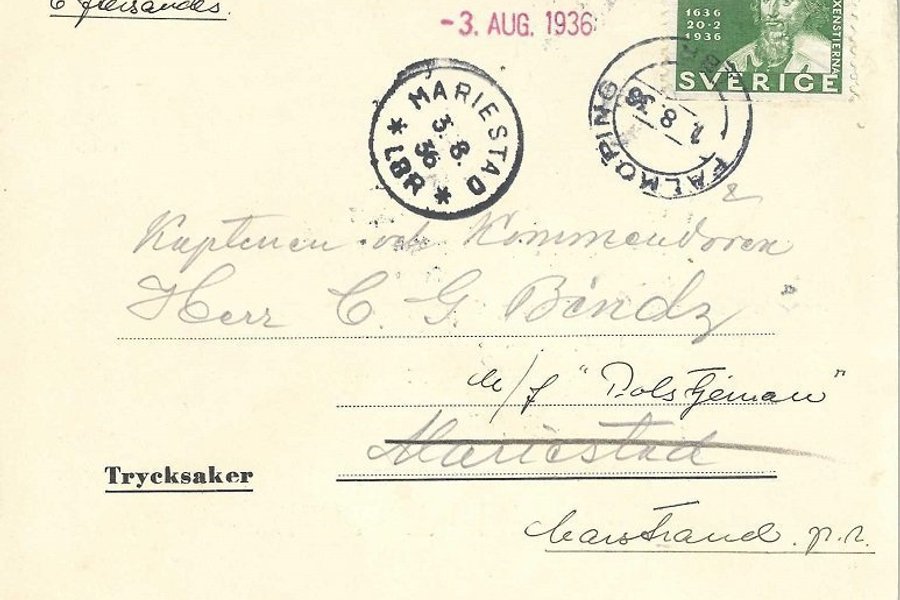 Eftersändes.
-3. AUG. 1936
1636
20-2
1936
OXENSTIERNA
SVERIGE
MARIESTAD
3. 8.
36
* LBR *
FALKÖPING
1. 8. 36
Kaptenen och Kommendören
Herr C. G. Bindz
m/f "Polstjernan"
Mariestad
Trycksaker
Marstrand. p.r.